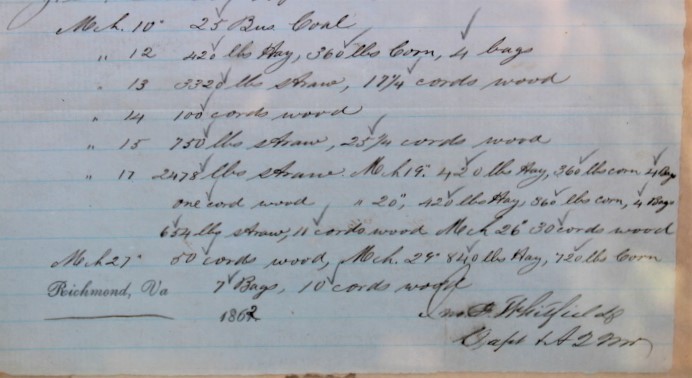 Mch. 10" 25 Bus Coal
" 12 420 lbs Hay, 360 lbs Corn, 4 bags
" 13 3320 lbs straw, 17 1/4 cords wood
" 14 100 cords wood
" 15 750 lbs straw, 25 1/4 cords wood
" 17 2478 lbs straw. Mch 19" 420 lbs Hay, 360 lbs corn 4 Bags
one cord wood, " 20", 420 lbs Hay, 360 lbs corn, 4 Bags
654 lbs straw, 11 cords wood Mch 26" 30 cords wood
Mch 27" 50 cords wood, Mch. 29" 840 lbs Hay, 720 lbs Corn
Richmond, Va 7 Bags, 10 cords wood
1862 Whitfield
Capt & A Q M